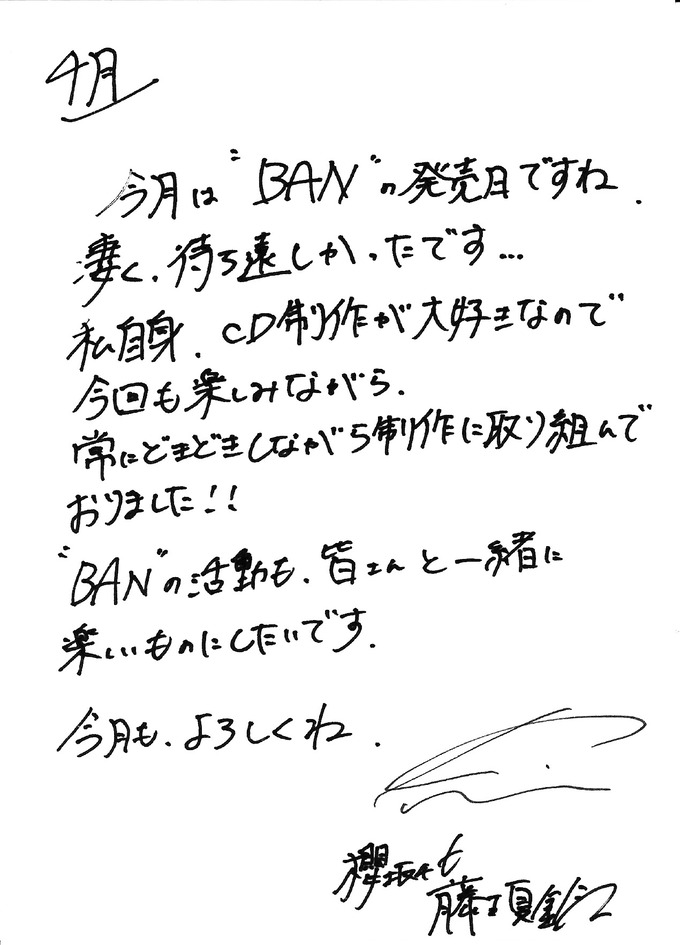 4月
今月は"BAN"の発売日ですね.
凄く、待ち遠しかったです...
私自身、CD制作が大好きなので
今回も楽しみながら、
常にどきどきしながら制作に取り組んで
おりました!!
"BAN"の活動も、皆さんと一緒に
楽しいものにしたいです.
今月も、よろしくね.
櫻坂46
藤吉夏鈴